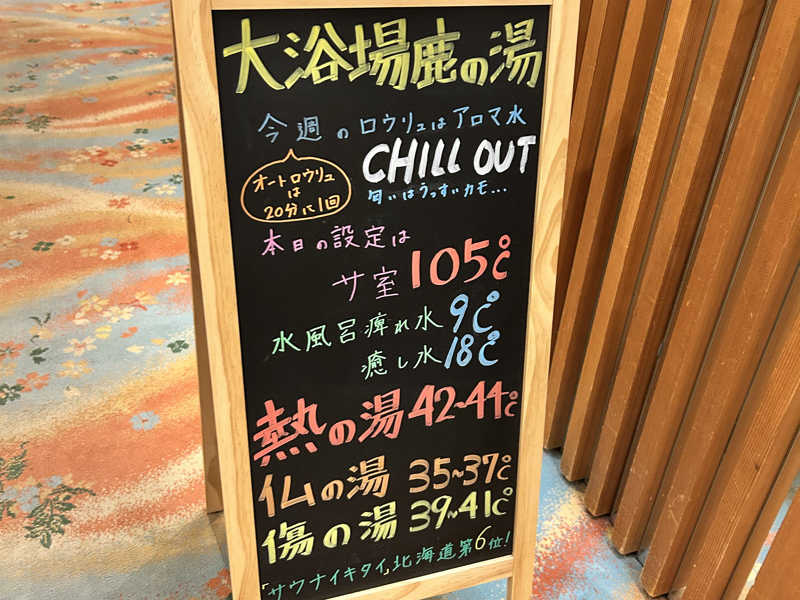 大浴場鹿の湯
今週のロウリュはアロマ水
オートロウリュ
は
20分に1回
CHILL OUT
匂いはうっすいカモ...
本日の設定は
サ室 105℃
水風呂痺れ水 9℃
癒し水 18℃
熱の湯 42~44℃
仏の湯 35~37℃
傷の湯 39~41℃
「サウナイキタイ」北海道第6位!